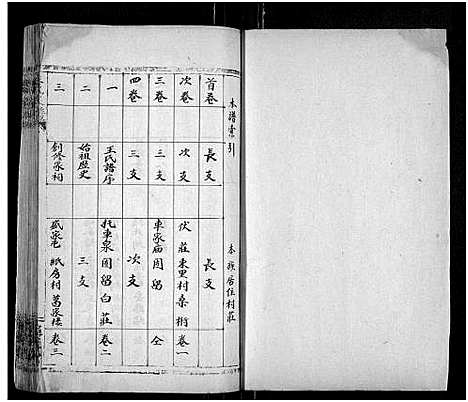 本譜索引
本族居住村莊
首卷 長支 長支
次卷 次支 伏莊東里村桑樹 卷一
三卷 三支 車家廟圈留 全
四卷 三支 次支
一 王氏譜序 托車泉圈留白莊 卷二
二 始祖歷史 三支
三 創修家祠 盛家屯 紙房村 葛家樓 卷三